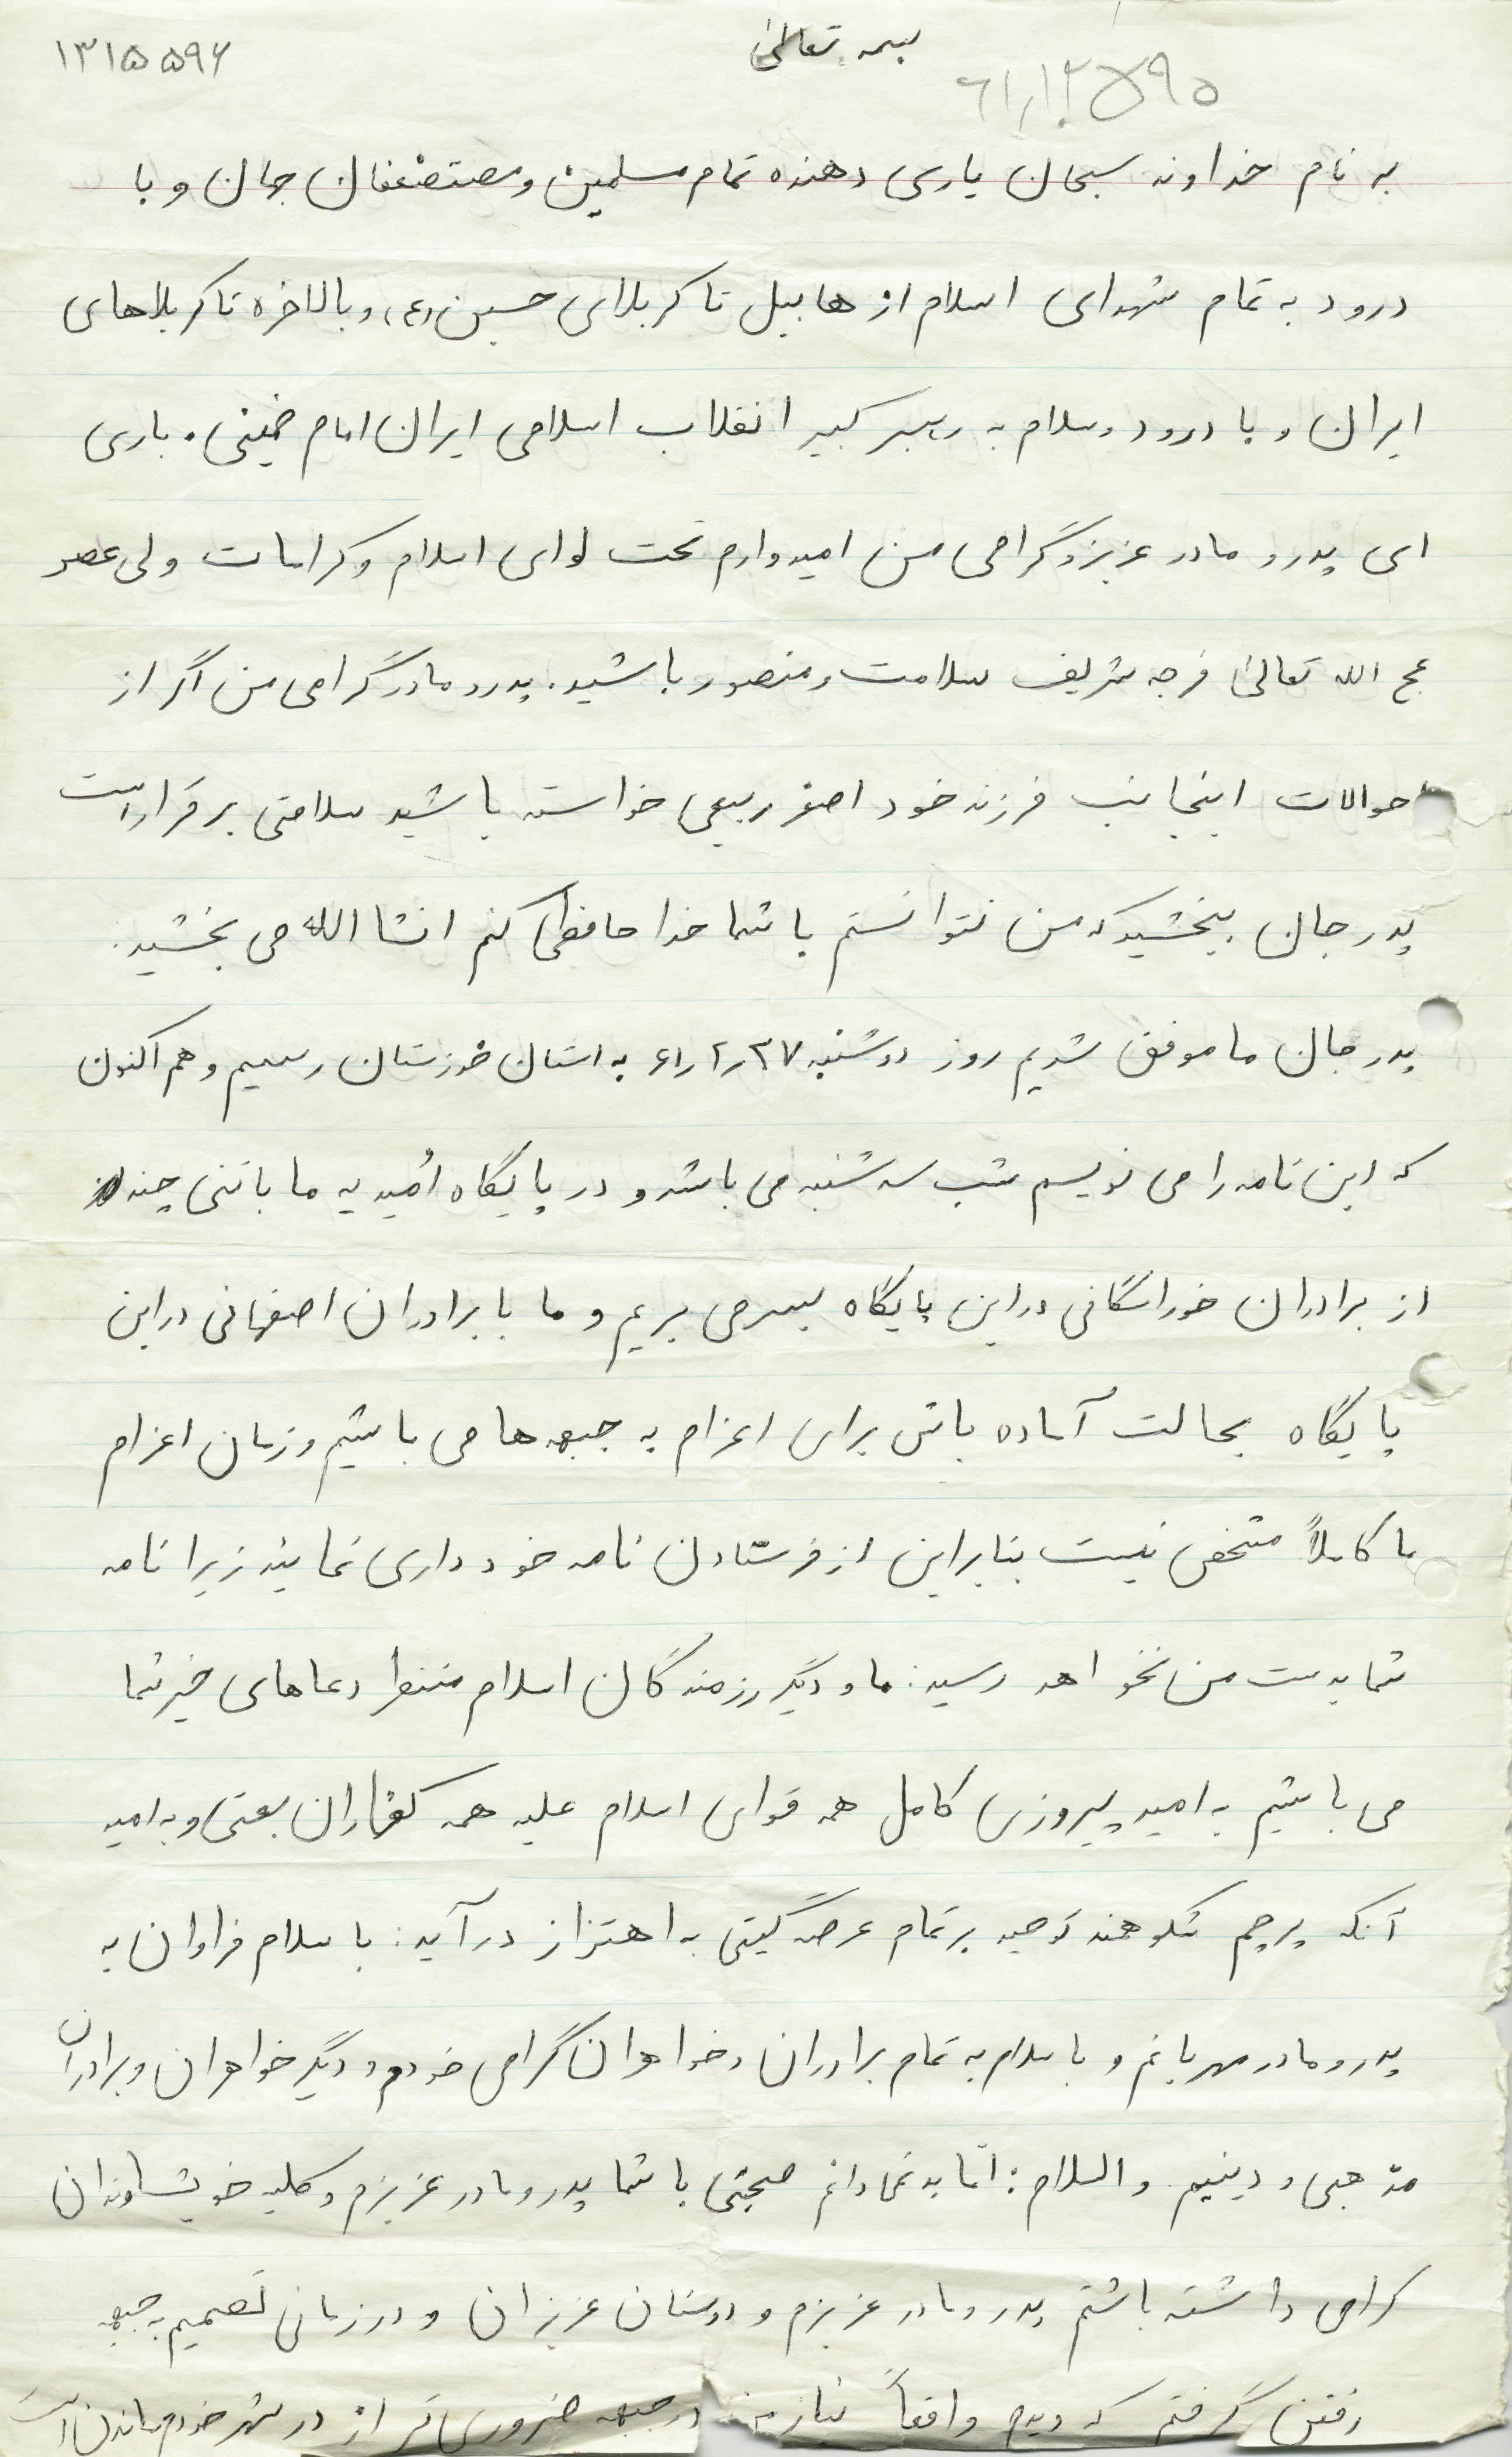 بسمه تعالی
۱۳۱۵۵۹۶
به نام خداوند سبحان یاری دهنده تمام مسلمین و مصتضعفان جهان و با
درود به تمام شهدای اسلام از هابیل تا کربلای حسین (ع) و بالاخره تا کربلاهای
ایران و با درود و سلام به رهبر کبیر انقلاب اسلامی ایران امام خمینی. باری
ای پدر و مادر عزیز و گرامی من امیدوارم تحت لوای اسلام و کرامات ولی عصر
عج الله تعالی فرجه شریف سلامت و منصور باشید. پدر و مادر گرامی من اگر از
احوالات اینجانب فرزند خود اصغر ربیعی خواسته باشید سلامتی برقرار است
پدر جان ببخشید که من نتوانستم با شما خدا حافظی کنم انشا الله می بخشید:
پدر جان ما موفق شدیم روز دوشنبه ۲۷ر۱۲ر۶۱ به استان خوزستان رسیم و هم اکنون
که این نامه را می نویسم شب سه شنبه می باشد و در پایگاه اُمیدیه ما با تنی چند
از برادران خوراسگانی در این پایگاه بسر می بریم و ما با برادران اصفهانی در این
پایگاه بحالت آماده باش برای اعزام به جبهه ها می باشیم و زمان اعزام
ما کاملاً مشخص نیست بنابراین از فرستادن نامه خود داری نمایند زیرا نامه
شما بدست من نخواهد رسید: ما و دیگر رزمندگان اسلام منتظر دعاهای خیر شما
می باشیم به امید پیروزی کامل همه قوای اسلام علیه همه کفاران بعثی و به امید
آنکه پرچم شکوهمند توحید بر تمام عرصه گیتی به اهتزاز در آید: با سلام فراوان به
پدر و مادر مهربانم و با سلام به تمام برادران و خواهران گرامی خودم و دیگر خواهران و برادران
مذهبی و دینیم والسلام: امّا بد نمادانم صحبتی با شما پدر و مادر عزیزم و کلیه خویشاوندان
گرامی داشته باشم پدر و مادر عزیزم و دوستان عزیزان و در زمانی تصمیم به جبهه
رفتن گرفتم که دیدم واقعاً نیاز در جبهه ضروری تر از در شهر خودم ماندن است